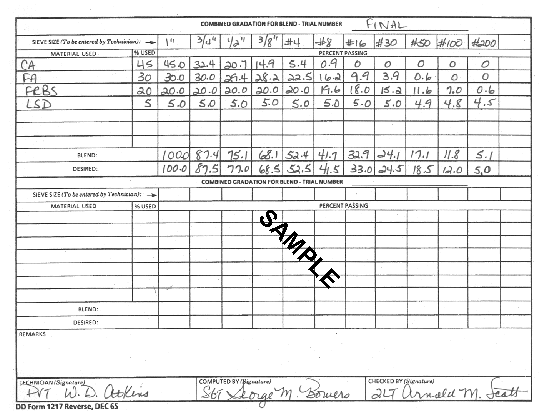 COMBINED GRADATION FOR BLEND - TRIAL NUMBER FINAL
SIEVE SIZE (To be entered by Technician): 1" 3/4" 1/2" 3/8" #4 #8 #16 #30 #50 #100 #200
MATERIAL USED % USED PERCENT PASSING
CA 45 45.0 32.4 20.7 14.9 5.4 0.9 0 0 0 0 0
FA 30 30.0 30.0 29.4 28.2 22.5 16.2 9.9 3.9 0.6 0 0
FRBS 20 20.0 20.0 20.0 20.0 20.0 19.6 18.0 15.2 11.6 7.0 0.6
LSD 5 5.0 5.0 5.0 5.0 5.0 5.0 5.0 5.0 4.9 4.8 4.5
BLEND: 100.0 87.4 75.1 68.1 52.4 41.7 32.9 24.1 17.1 11.8 5.1
DESIRED: 100.0 87.5 77.0 68.5 52.5 41.5 33.0 24.5 18.5 12.0 5.0
COMBINED GRADATION FOR BLEND - TRIAL NUMBER
SIEVE SIZE (To be entered by Technician):
MATERIAL USED % USED PERCENT PASSING
SAMPLE
BLEND:
DESIRED:
REMARKS
TECHNICIAN (Signature) COMPUTED BY (Signature) CHECKED BY (Signature)
PVT W. D. Atkins SGT George M. Bowers 2LT Arnold M. Scatt
DD Form 1217 Reverse, DEC 65